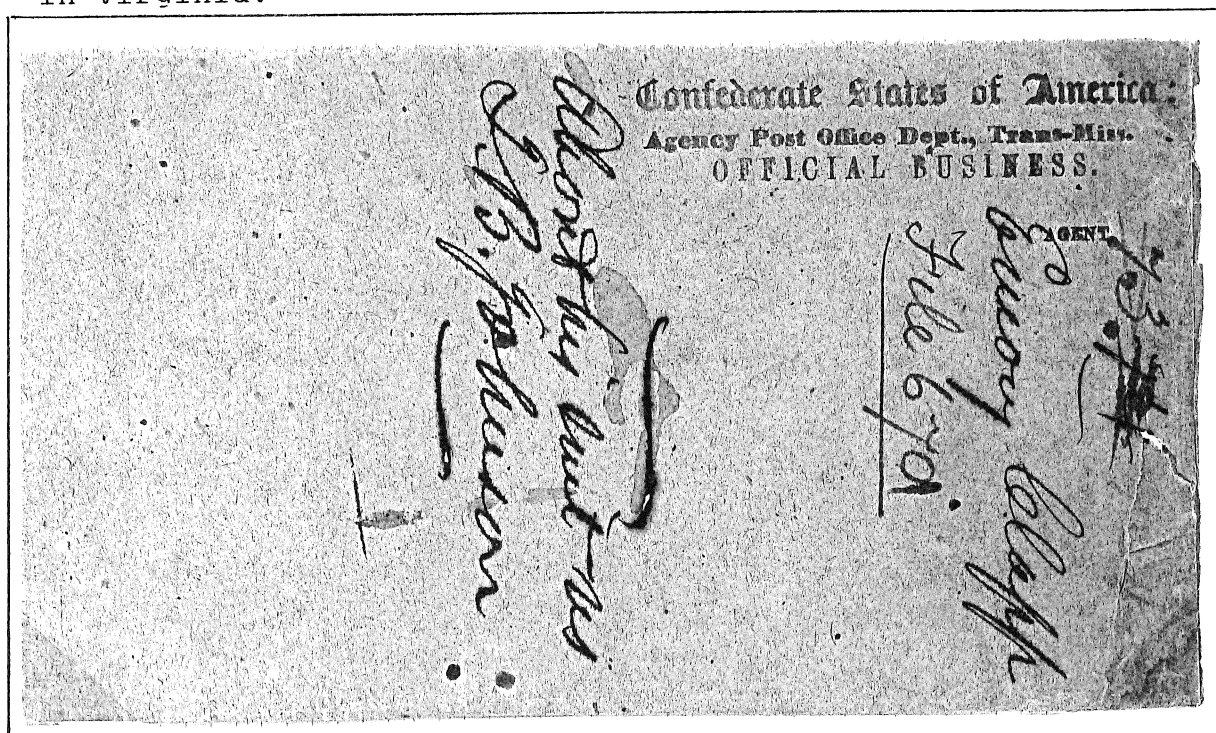 in Virginia.
Confederate States of America:
Agency Post Office Dept., Trans-Miss.
OFFICIAL BUSINESS.
AGENT.
Emory Clapp
File 670.
his
vs
J. B. Johnson